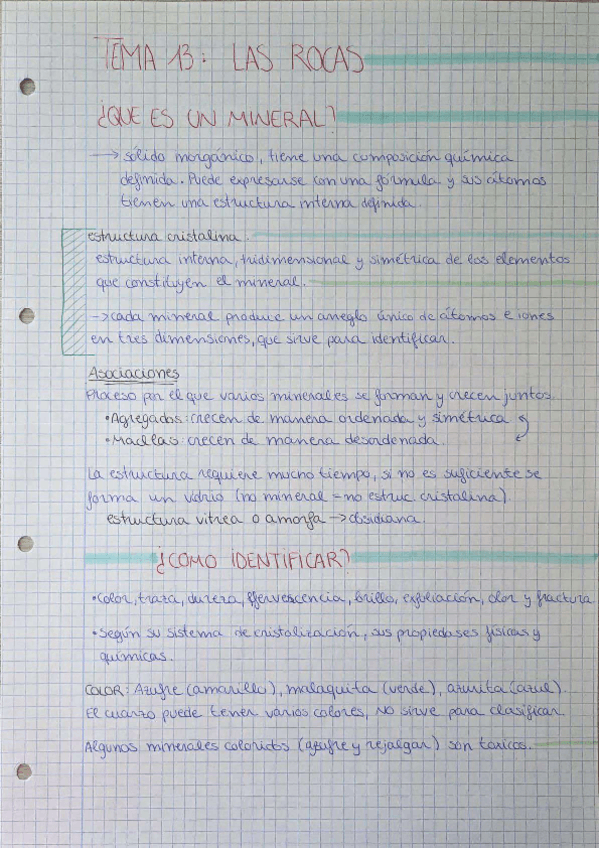 TEMA 13: LAS ROCAS
¿QUE ES UN MINERAL?
→ sólido inorgánico, tiene una composición química
definida. Puede expresarse con una fórmula y sus átomos
tienen una estructura interna definida.
estructura cristalina.
estructura interna, tridimensional y simétrica de los elementos
que constituyen el mineral.
→ cada mineral produce un arreglo único de átomos e iones
en tres dimensiones, que sirve para identificar.
Asociaciones
Proceso por el que varios minerales se forman y crecen juntos.
• Agregados: crecen de manera ordenada y simétrica
• Maclas: crecen de manera desordenada.
La estructura requiere mucho tiempo, si no es suficiente se
forma un vidrio (no mineral = no estruc. cristalina)
estructura vitrea o amorfa → obsidiana.
¿COMO IDENTIFICAR?
• Color, traza, dureza, efervescencia, brillo, exfoliación, olor y fractura
• Según su sistema de cristalización, sus propiedases físicas y
químicas.
COLOR: Azufre (amarillo), malaquita (verde), azurita (azul).
El cuarzo puede tener varios colores, NO sirve para clasificar.
Algunos minerales coloridos (azufre y rejalgar) son toxicos.